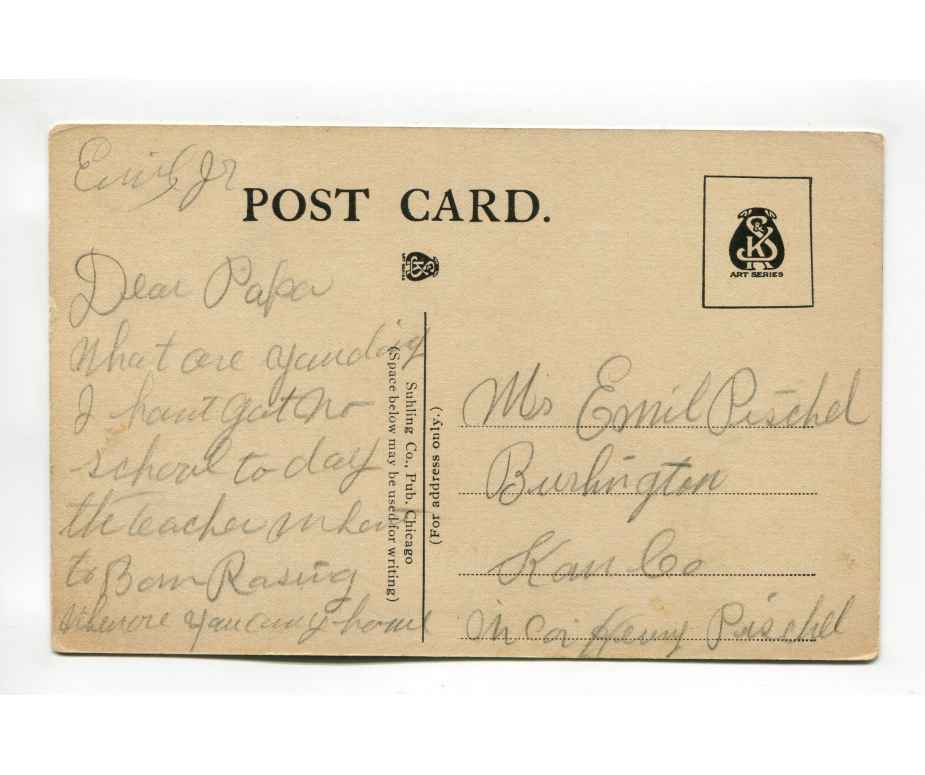 Emil Jr
POST CARD.
S & K
ART SERIES
Dear Papa
What are you doing
I hant got no
school to day
the teacher
to Barn Rasing
When are you coming home
Suhling Co., Pub. Chicago
(Space below may be used for writing)
(For address only.)
Mr Emil Pischel
Burlington
Co
Pischel